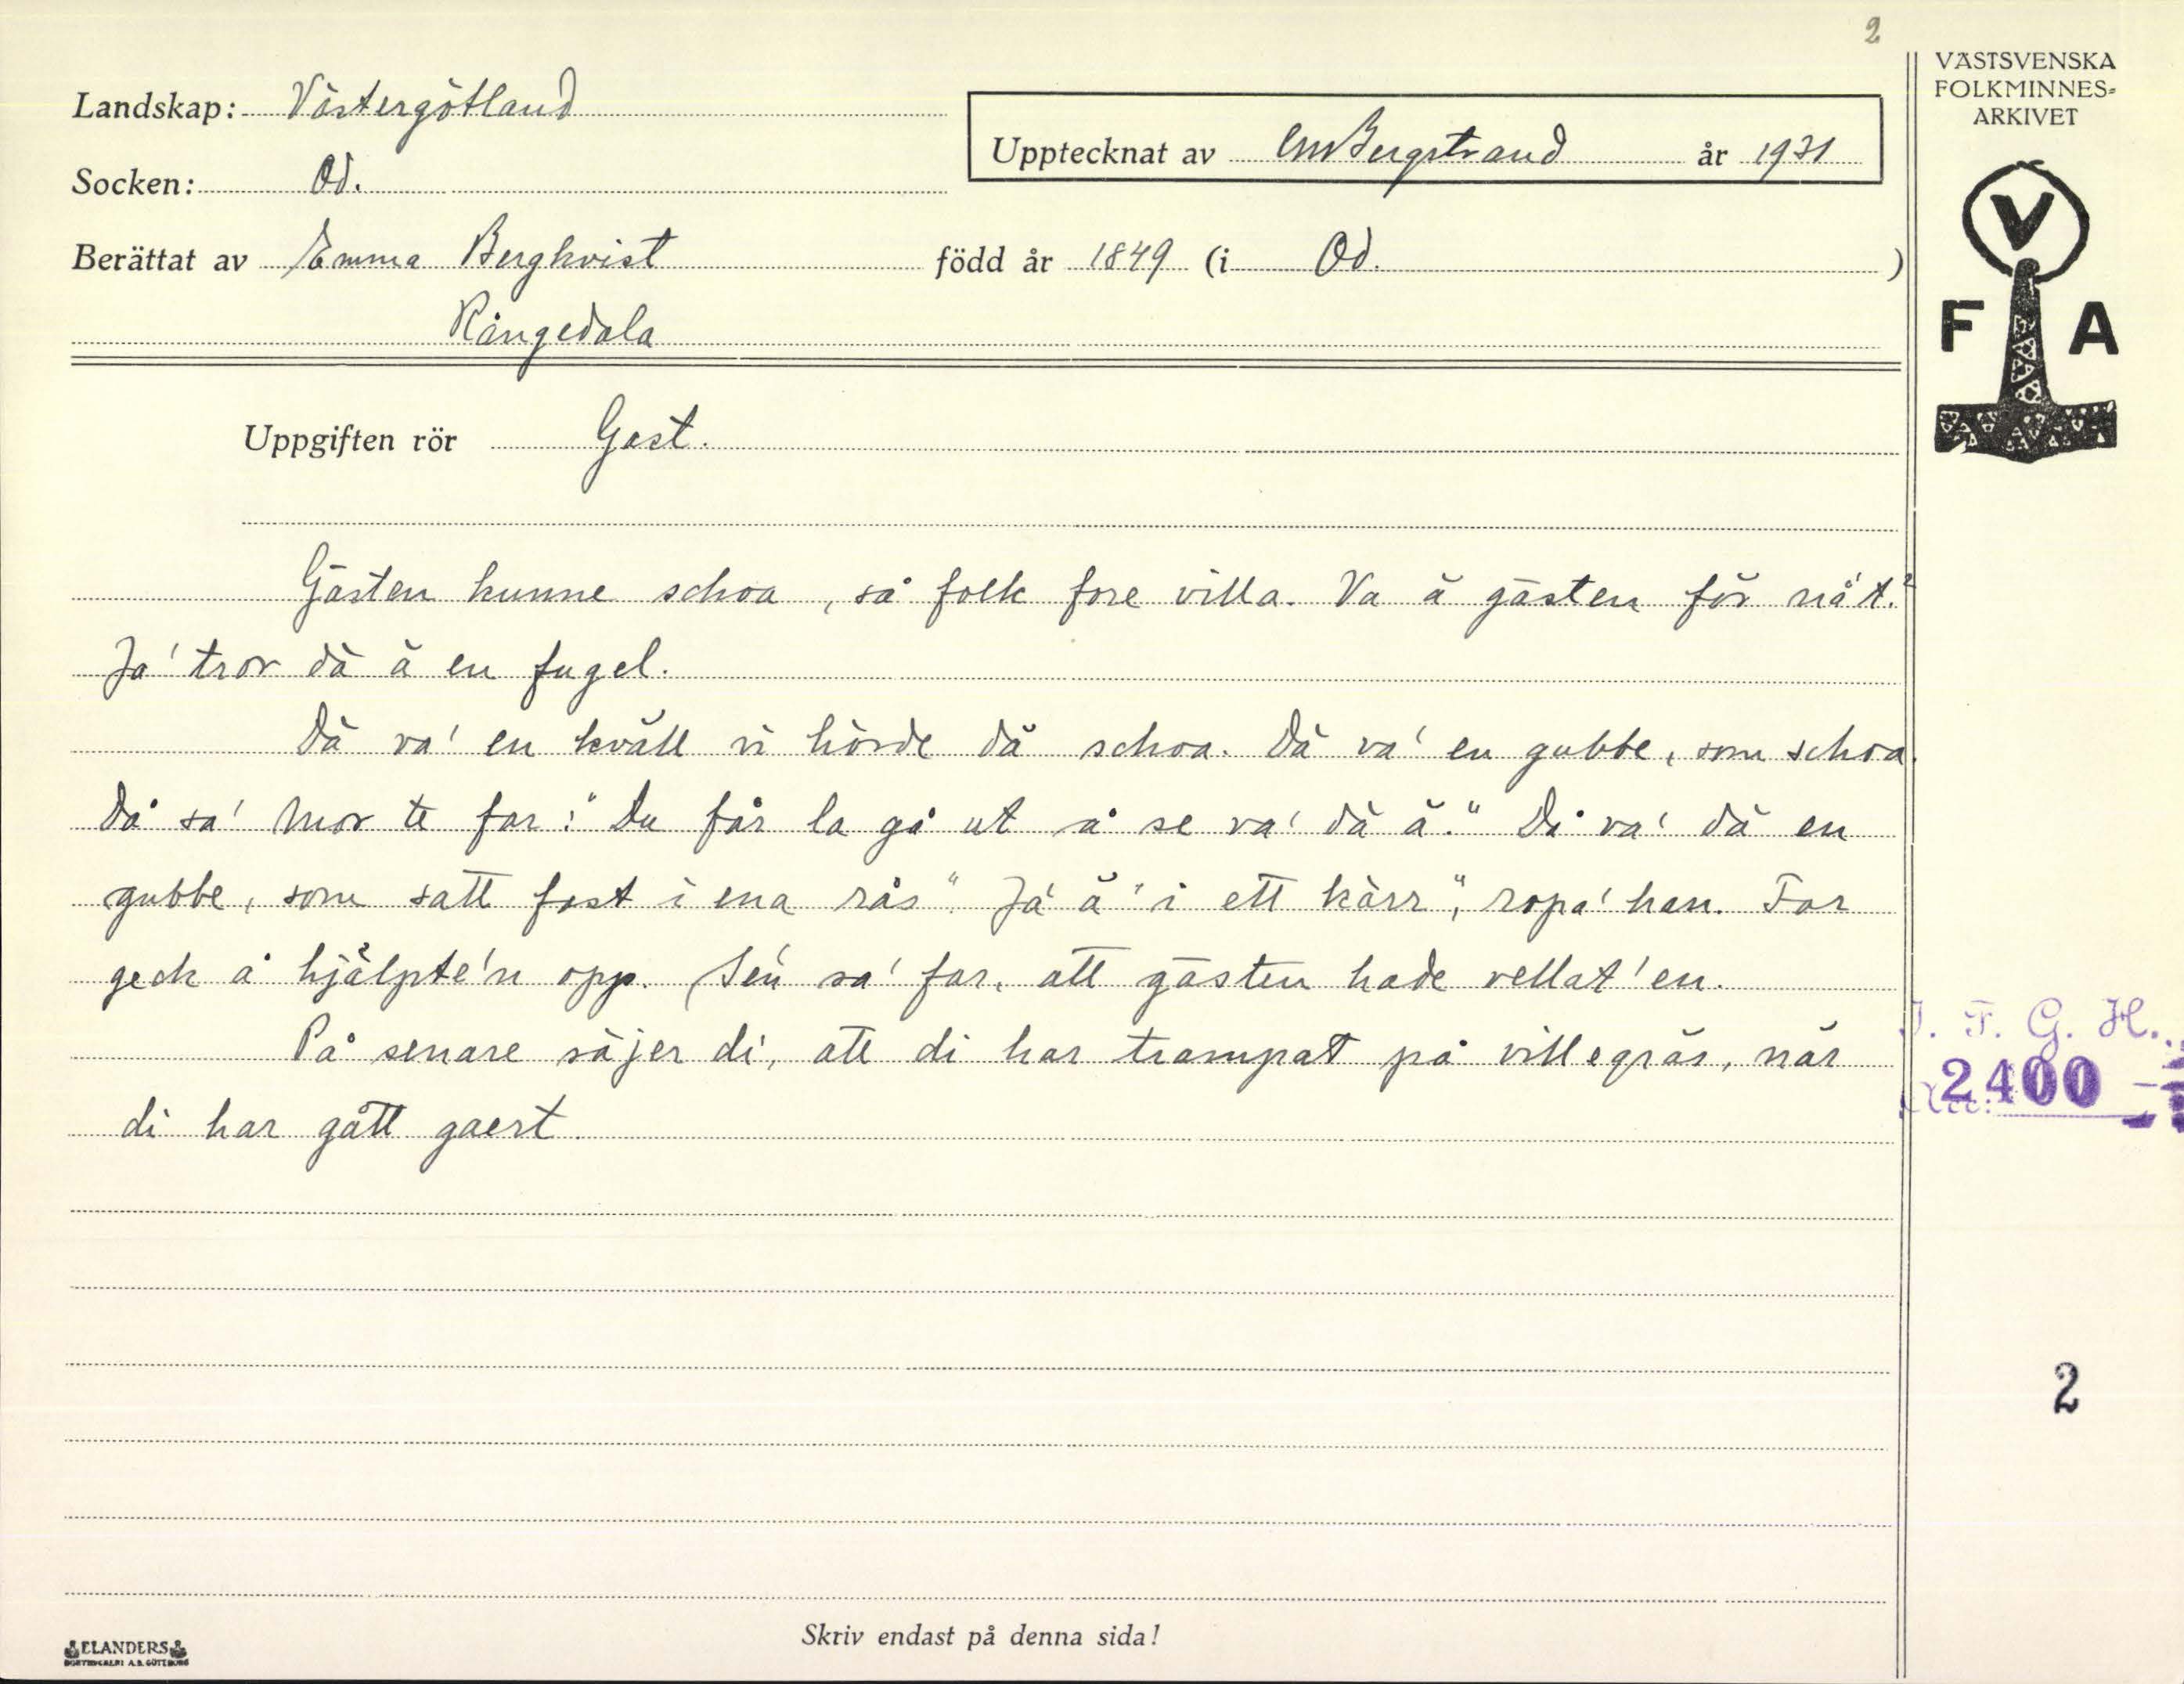 2
VÄSTSVENSKA
FOLKMINNES-
ARKIVET
Landskap: Västergötland
Upptecknat av CM Bergstrand år 1931
Socken: Od.
Berättat av Emma Bergkvist född år 1849 (i Od.)
Rångedala
V
F A
Uppgiften rör Gast.
Gasten kunne schoa, så folk fore villa. Va ä gasten för nå't?
Ja' tror dä ä en fugel.
Dä va' en kväll vi hörde dä schoa. Dä va' en gubbe, som schoa.
Då sa' mor te far: "Du får la gå ut å se va' dä ä." Då va' dä en
gubbe, som satt fast i ena rås". Ja' ä' i ett kärr", ropa' han. Far
geck å hjälpte'n opp. Sén sa' far, att gasten hade vellat'en.
På senare säjer di, att di har trampat på villegräs, när
di har gått gaert.
I. F. G. H.
Acc. 2400
2
Skriv endast på denna sida!
ELANDERS
BOKTRYCKERI A.B. GÖTEBORG